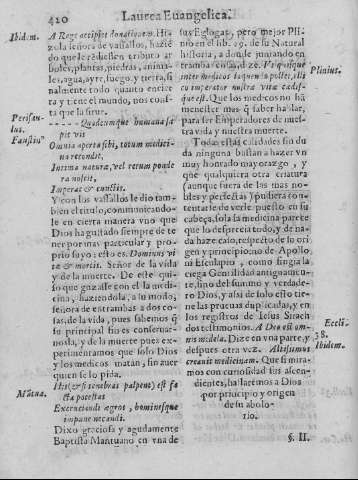 420
Laurea Euangelica.
Ibidem.
A Rege accipiet donationem. Hi-
zola señora de vassallos, hazié
do que le redituen tributo ar
boles, plantas, piedras, anima-
les, agua, ayre, fuego, y tierra, fi
nalmente todo quanto encier
ra y tiene el mundo, nos cons-
ta que la sirue.
Perisau-
lus.
Faustin⁹
Quodcumque humana sa
pit vis
Omnia aperta sibi, totum medici-
na retendit,
Intima naturæ, vel rerum ponde
ra noscit,
Imperat & cunctis.
Y con los vassallos le dio tam-
bien el titulo, comunicandole
en cierta manera vno que
Dios ha gustado siempre de te
ner por mas particular y pro-
prio suyo: esto es. Dominus vi
tæ & mortis. Señor de la vida
y de la muerte. De este qui-
so que gozasse con el la medi-
cina, haziendola, a su modo,
señora de entrambas a dos co-
sas, de la vida, pues sabemos q̃
su principal fin es conseruar-
nosla, y de la muerte pues ex-
perimentamos que solo Dios
y los medicos matan, sin auer
quien se lo pida.
Mãtua.
His (& si tenebras palpent) est fa
cta potestas
Excruciandi ægros, hominesque
impune necandi.
Dixo graciosa y agudamente
Baptista Mantuano en vna de
sus Eglogas, pero mejor Pli-
nio en el lib. 29. de su Natural
historia, a donde juntando en
trambas cosas, dize.
Plinius.
Vt quisque
inter medicos loquendo pollet, illi
co imperator nostræ vitæ cadis-
que est. Que los medicos no hã
menester mas q̃ saber hablar,
para ser Emperadores de nues-
tra vida y nuestra muerte.
Todas estas calidades sin du
da ninguna bastan a hazer vn
muy honrado mayorazgo, y
que qualquiera otra criatura
(aunque fuera de las mas no-
bles y perfectas) pudiera con
tentarse de verle puesto en su
cabeça, sola la medicina parece
que lo desprecia todo, y de na-
da haze caso, respecto de lo ori
gen y principio no de Apollo,
ni Esculapio, como fingia la
ciega Gentilidad antiguamen-
te, sino del sumo y verdade-
ro Dios, y assi de solo esto tie-
ne las prueuas duplicadas, y en
los registros de Iesus Sirach
dos testimonios.
Eccli.
38.
Ibidem.
A Deo est om-
nis medela. Dize en vna parte, y
despues otra vez. Altissimus
creauit medicinam. Que si mira-
mos con curiosidad sus ascen-
dientes, hallaremos a Dios
por principio y origen
de su abolo-
rio.
§. II.